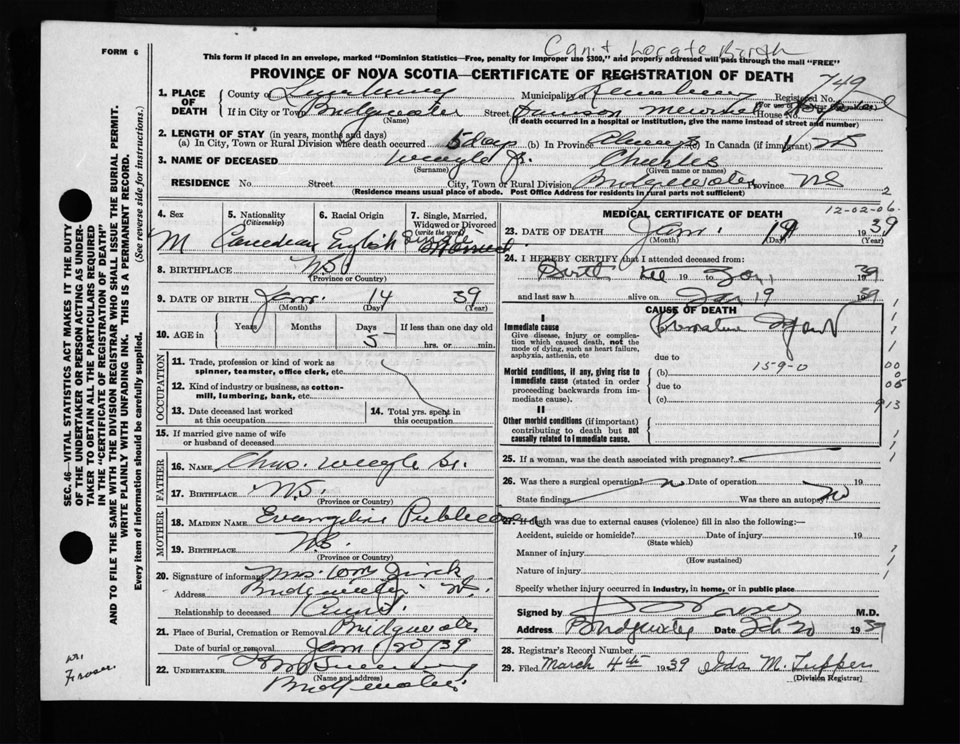 FORM 6
Can't Locate Birth
This form if placed in an envelope, marked "Dominion Statistics—Free, penalty for improper use $300," and properly addressed will pass through the mail "FREE"
PROVINCE OF NOVA SCOTIA—CERTIFICATE OF REGISTRATION OF DEATH
749
1. PLACE OF DEATH
County of Lunenburg Municipality of Registered No.
If in City or Town Bridgewater (Name) Street Dawson Memorial House No. Hospital
(If death occurred in a hospital or institution, give the name instead of street and number)
2. LENGTH OF STAY (in years, months and days)
(a) In City, Town or Rural Division where death occurred 5 days (b) In Province Always (c) In Canada (if immigrant)
3. NAME OF DECEASED Weagle Jr. (Surname) Charles (Given name or names)
RESIDENCE No. Street City, Town or Rural Division Bridgewater Province NS
(Residence means usual place of abode. Post Office Address for residents in rural parts not sufficient)
4. Sex M
5. Nationality (Citizenship) Canadian
6. Racial Origin English
7. Single, Married, Widowed or Divorced (write the word) Single
8. BIRTHPLACE N.S. (Province or Country)
9. DATE OF BIRTH Jan. 14 39 (Month) (Day) (Year)
10. AGE in Years Months Days 5 If less than one day old hrs. or min.
OCCUPATION
11. Trade, profession or kind of work as spinner, teamster, office clerk, etc.
12. Kind of industry or business, as cotton-mill, lumbering, bank, etc.
13. Date deceased last worked at this occupation
14. Total yrs. spent in this occupation
15. If married give name of wife or husband of deceased
FATHER
16. NAME Chas. Weagle Sr.
17. BIRTHPLACE N.S. (Province or Country)
MOTHER
18. MAIDEN NAME Evangeline Publicover
19. BIRTHPLACE N.S. (Province or Country)
20. Signature of informant Mrs. Wm
Address Bridgewater
Relationship to deceased Aunt.
21. Place of Burial, Cremation or Removal Bridgewater
Date of burial or removal Jan 20/39
22. UNDERTAKER (Name and address)
Bridgewater
12-02-06-2
MEDICAL CERTIFICATE OF DEATH
23. DATE OF DEATH Jan. 19 1939 (Month) (Day) (Year)
24. I HEREBY CERTIFY that I attended deceased from
Birth 19 to Jan, 1939
and last saw h alive on Jan 19 1939
CAUSE OF DEATH
I
Immediate cause Premature Infant
Give disease, injury or complication which caused death, not the mode of dying, such as heart failure, asphyxia, asthenia, etc
due to
Morbid conditions, if any, giving rise to immediate cause (stated in order proceeding backwards from immediate cause).
(b) 159-0
due to
(c)
II
Other morbid conditions (if important) contributing to death but not causally related to immediate cause.
25. If a woman, was the death associated with pregnancy?
26. Was there a surgical operation? no Date of operation 19
State findings Was there an autopsy? no
27. If death was due to external causes (violence) fill in also the following:—
Accident, suicide or homicide? Date of injury 19
(State which)
Manner of injury
(How sustained)
Nature of injury
Specify whether injury occurred in industry, in home, or in public place
Signed by M.D.
Address Bridgewater Date 20 1939
28. Registrar's Record Number
29. Filed March 4th 1939 Ida M. Tupper
(Division Registrar)
SEC. 46—VITAL STATISTICS ACT MAKES IT THE DUTY OF THE UNDERTAKER OR PERSON ACTING AS UNDERTAKER TO OBTAIN ALL THE PARTICULARS REQUIRED IN THE "CERTIFICATE OF REGISTRATION OF DEATH" AND TO FILE THE SAME WITH THE DIVISION REGISTRAR WHO SHALL ISSUE THE BURIAL PERMIT.
WRITE PLAINLY WITH UNFADING INK. THIS IS A PERMANENT RECORD.
Every item of information should be carefully supplied. (See reverse side for instructions.)